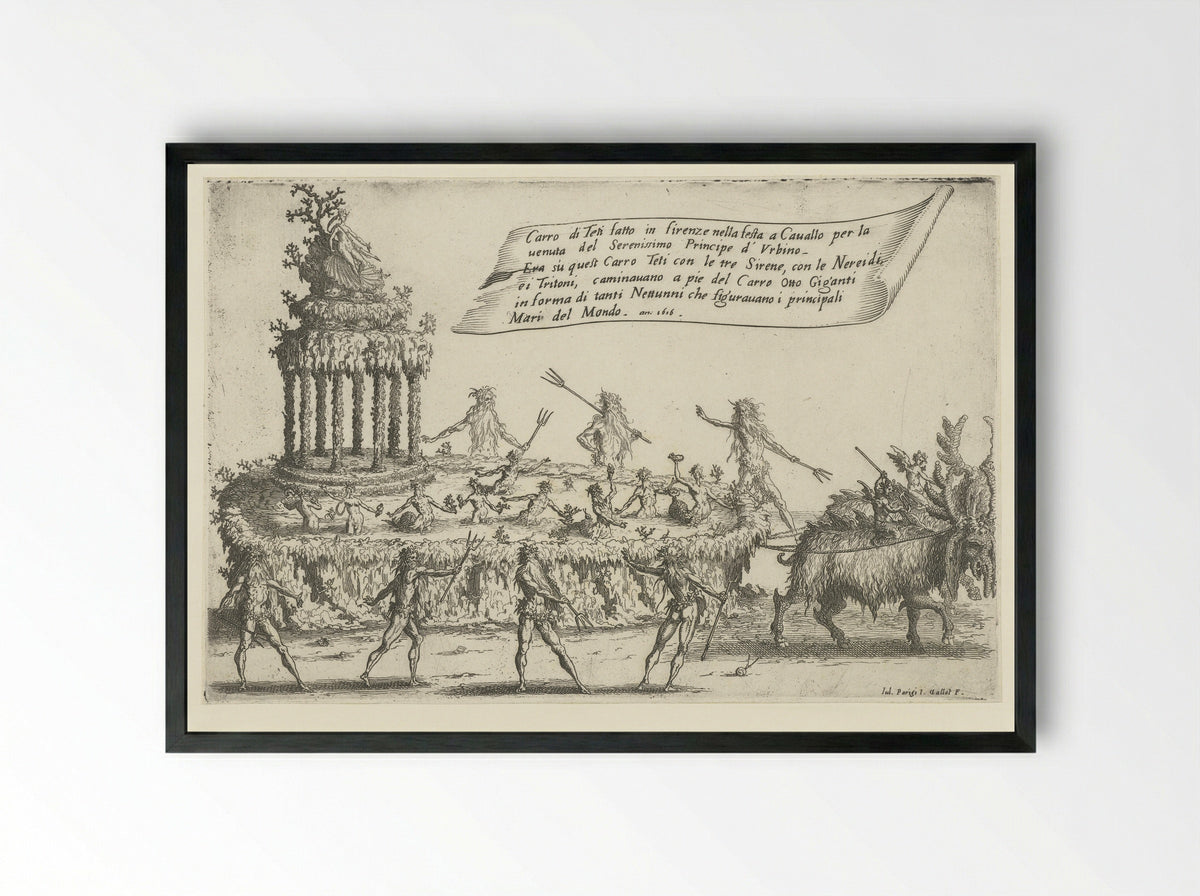 Carro di Teti fatto in firenze nella festa a Cauallo per la
uenuta del Serenissimo Principe d' Vrbino.
Era su quest Carro Teti con le tre Sirene, con le Nereidi,
ei Tritoni, caminauano a pie del Carro Otto Giganti
in forma di tanti Nettunni che figurauano i principali
Mari del Mondo. an. 1616.
Iul. Parigi I. Callot F.